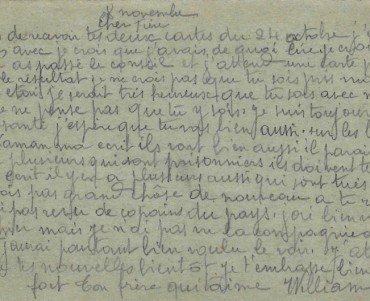 novembre
cher
de recevoir tes deux cartes du 24 octobre j'
avec je crois que j'avais de quoi lire
as passé le conseil et j'attend une carte p
le resultat je ne crois pas que tu sois pris
etais je serait très heureux que tu sois avec
ne pense pas que tu y sois je suis toujour
santé j'espère que tu vas bien aussi sur les
maman m'a ecrit ils vont bien aussi il parai
plusieurs qui sont prisonniers ils doivent te
ecrit il y en a plusieurs aussi qui sont tués
pas grand chose de nouveau a te
pas revu de copains du pays j'ai bien
mais je n'ai pas vu la compagnie
j'aurai pourtant bien voulu le voir
tes nouvelles bientot je t'embrasse bien
fort ton frère qui t'aime William